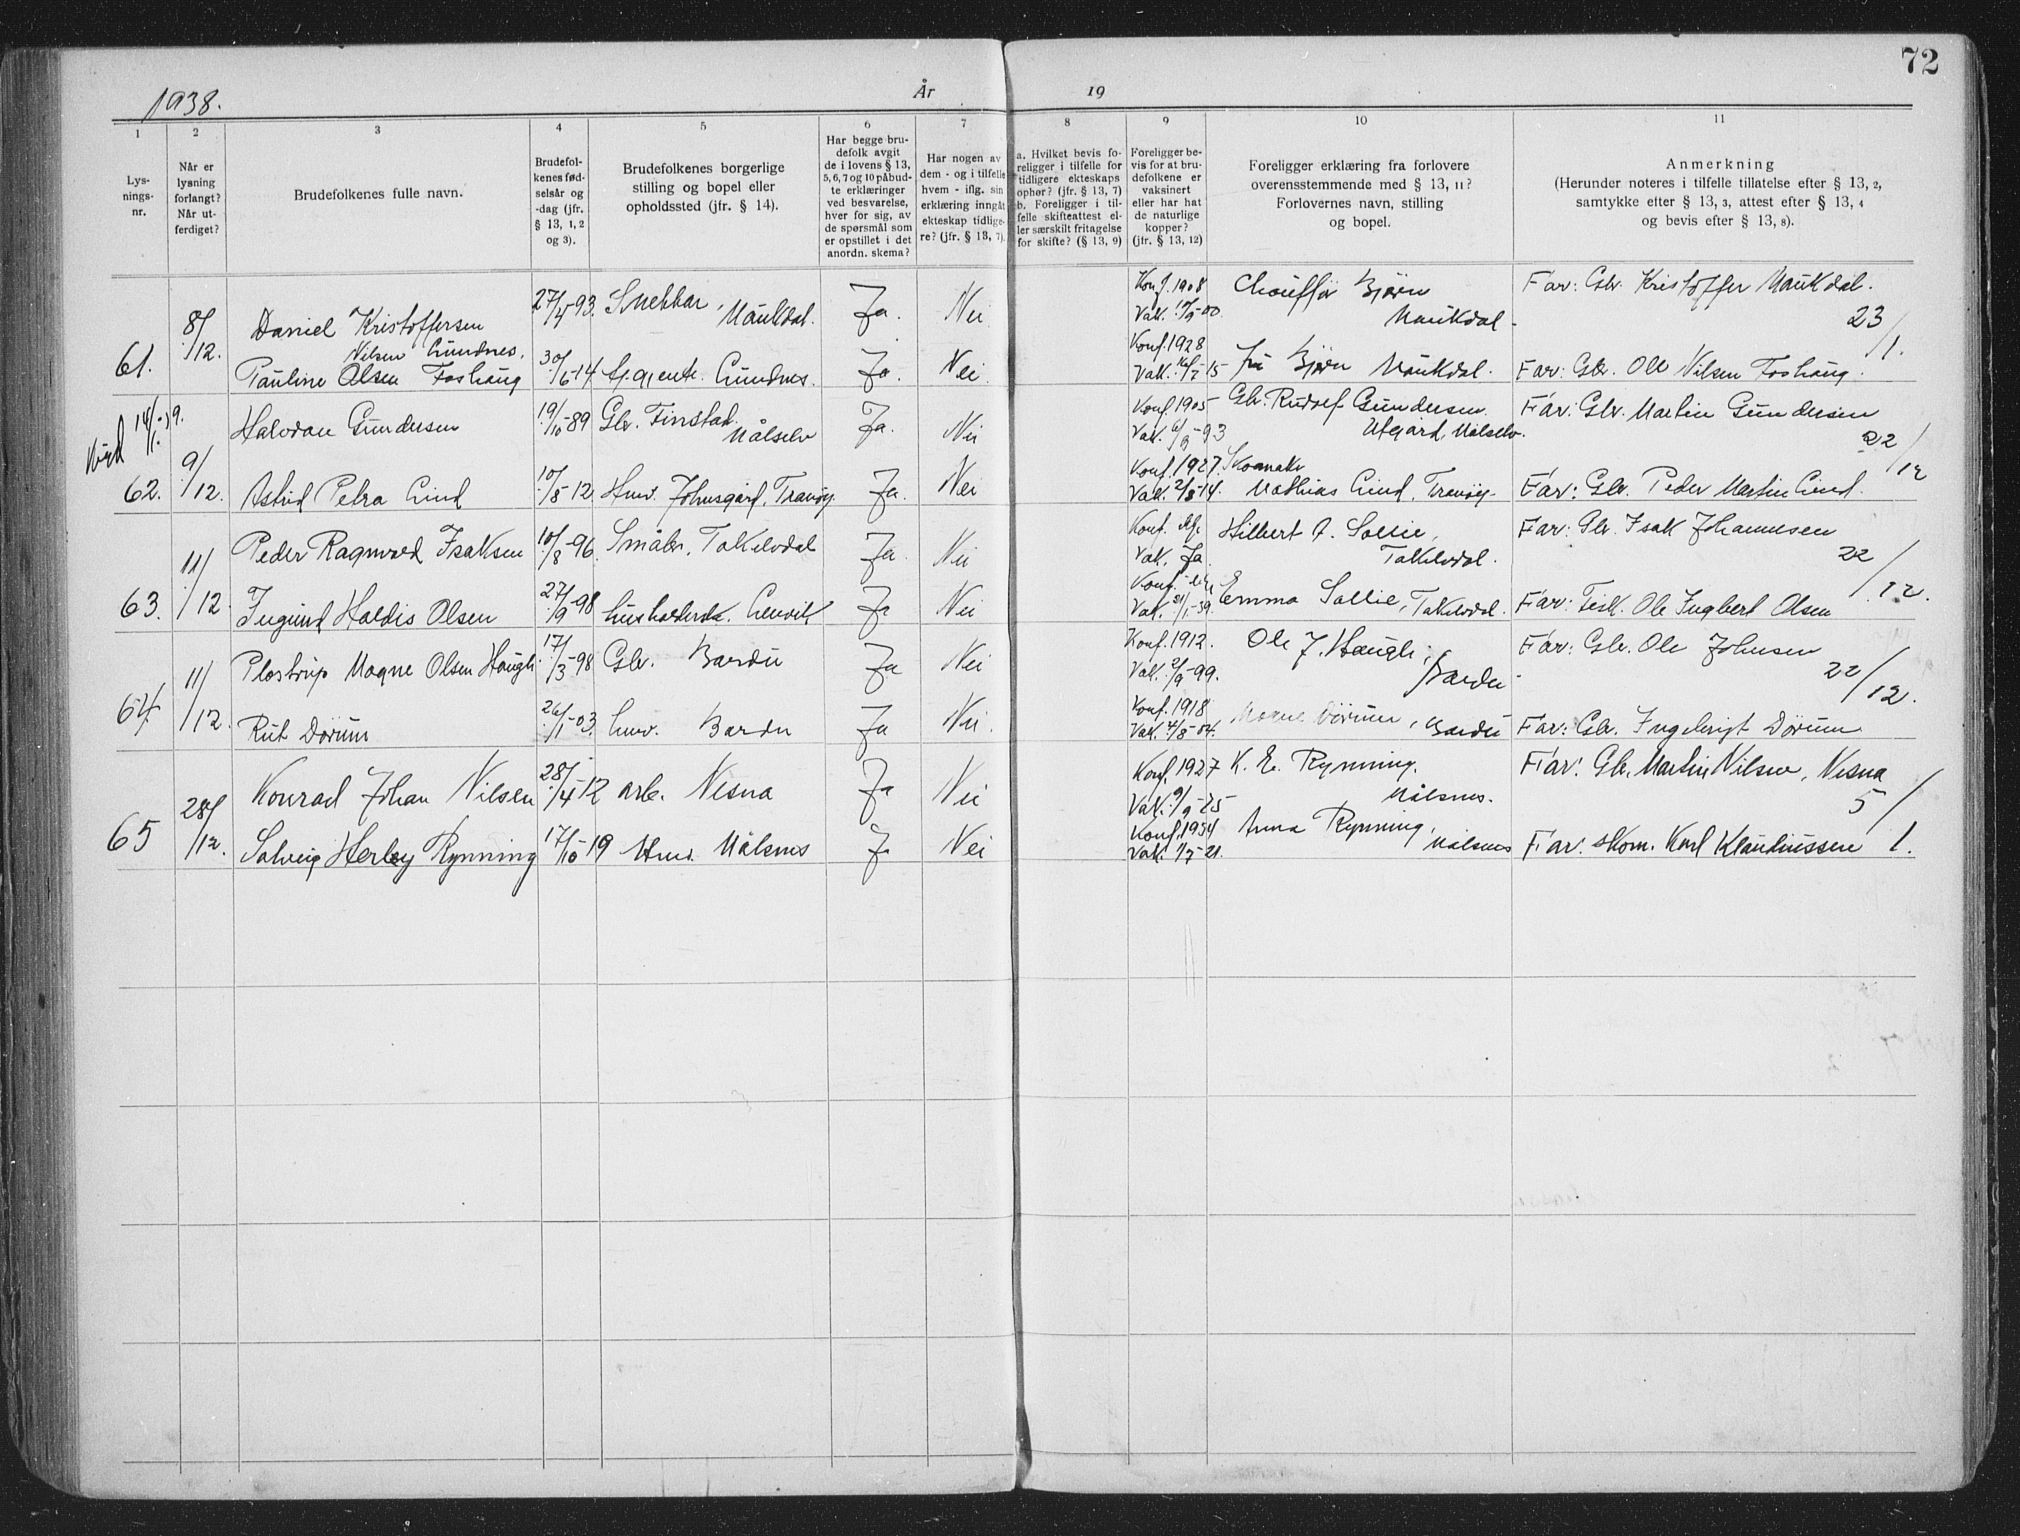 72
1938.
År 19
1 2 3 4 5 6 7 8 9 10 11
Lys-
nings-
nr.
Når er
lysning
forlangt?
Når ut-
ferdiget?
Brudefolkenes fulle navn.
Brudefol-
kenes fød-
selsår og
-dag (jfr.
§ 13, 1, 2
og 3).
Brudefolkenes borgerlige
stilling og bopel eller
opholdssted (jfr. § 14).
Har begge bru-
defolk avgit
de i lovens § 13,
5, 6, 7 og 10 påbud-
te erklæringer
ved besvarelse,
hver for sig, av
de spørsmål som
er opstillet i det
anordn. skema?
Har nogen av
dem - og i tilfelle
hvem - iflg. sin
erklæring inngåt
ekteskap tidlige-
re? (jfr. § 13, 7).
a. Hvilket bevis fo-
religger i tilfelle for
tidligere ekteskaps
ophør? (jfr. § 13, 7)
b. Foreligger i til-
felle skifteattest el-
ler særskilt fritagelse
for skifte? (§ 13, 9)
Foreligger be-
vis for at bru-
defolkene er
vaksinert
eller har hat
de naturlige
kopper?
(jfr. § 13, 12)
Foreligger erklæring fra forlovere
overensstemmende med § 13, 11?
Forlovernes navn, stilling
og bopel.
Anmerkning
(Herunder noteres i tilfelle tillatelse efter § 13, 2,
samtykke efter § 13, 3, attest efter § 13, 4
og bevis efter § 13, 8).
61. 8/12. Daniel Kristoffersen 27/4-93. Snekker, Maukdal. Ja. Nei Konf. 1908 Chauffør Bjørn Maukdal. Far: Gbr. Kristoffer Maukdal. 23/1.
Nilsen Lundnes.
Pauline Olsen Foshaug 30/6-14 Lundnes. Ja. Nei. Konf. 1928 Vak. 15 fru Bjørn Maukdal. Far: Gbr. Ole Nilsen Foshaug.
62. 9/12. Halvdan Gundersen 19/10-89 Gbr. Finstad. Målselv Ja. Nei Konf. 1905 Vak. 6/9-93 Gbr. Rudolf Gundersen. Utgård, Målselv. Far: Gbr. Martin Gundersen 22/12
Astrid Petra Lind 10/8-12 Husv. Johnsgård, Tranøy Ja. Nei Konf. 1927. Vak. 2/8-14. Skomaker Mathias Lind, Tranøy. Far: Gbr. Peder Martin Lind.
63. 11/12. Peder Ragnvald Isaksen 10/8-96. Småbr. Takelvdal Ja. Nei Konf. Vak. Ja Hilbert A. Sollie, Takelvdal. Far: Gbr. Isak Johannesen 22/12.
Ingund Haldis Olsen 27/9-98 husholderske. Lenvik Ja Nei Konf. Vak. 1-39. Emma Sollie, Takelvdal. Far: Fisk. Ole Ingbert Olsen
64. 11/12. Plostrup Magne Olsen Haugli 17/3-98 Gbr. Bardu Ja Nei Konf. 1912. Vak. 2/9-99. Ole J. Haugli, Bardu. Far: Gbr. Ole Johnsen 22/12.
Rut Dørum 26/1-03. husv. Bardu Ja Nei. Konf. 1918 Vak. 4/8-04. Magne Dørum, Bardu Far: Gbr. Ingebrigt Dørum
65 28/12. Konrad Johan Nilsen 28/4-12 arb. Nesna Ja Nei Konf. 1927 Vak. 9/9-25 K. E. Rynning. Målsnes. Far: Gbr. Martin Nilsen, Nesna 5/1.
Solveig Herley Rynning 17/10-19 Husv. Målsnes J. Nei Konf. 1934 Vak. 1/7-21. Anna Rynning, Målsnes Far: skom. Karl Klaudiussen